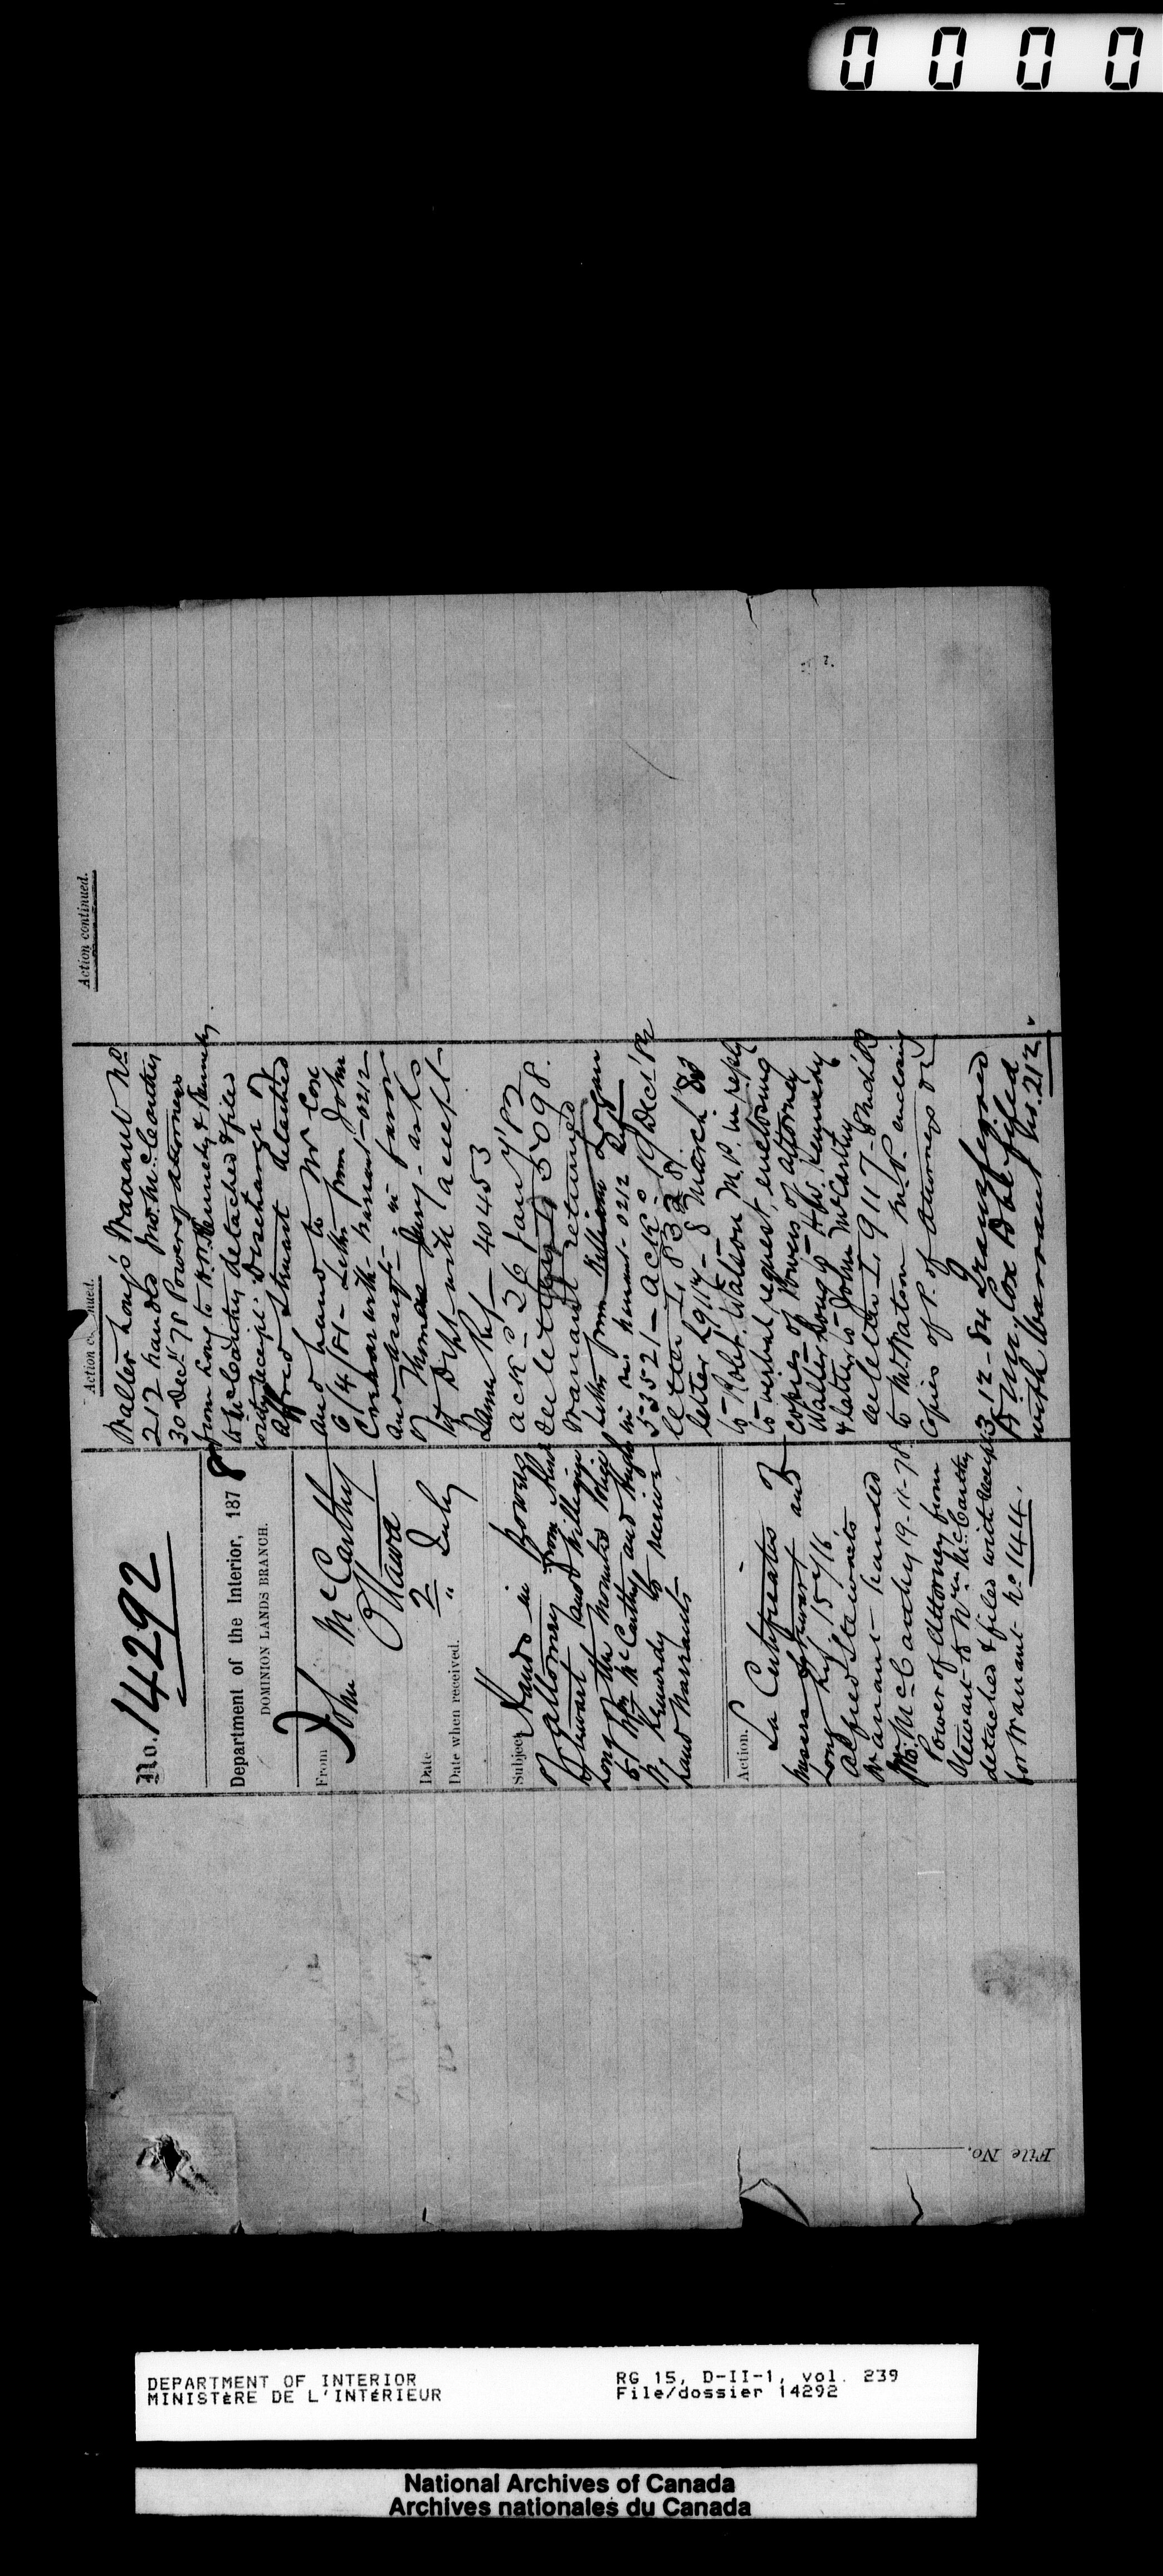 0 0 0 0
No. 14292
Department of the Interior, 1878
DOMINION LANDS BRANCH.
From John McCarthy
Ottawa
Date 2 July
Date when received. "
Subject. Sends in Powers
of attorney from Alfred
Stewart and
Long of the Mounted Police
to Wm McCarthy and Hugh
Kennedy to receive
land Warrants
Action.
La Certificates of
Messrs Stewart and
Long 15 & 16
Alfred Stewarts
Warrant handed
Mr. McCarthy 19-11-78.
Power of Attorney from
Stewart to Wm McCarthy
detached & filed with receipt
for Warrant No 144.
Action continued.
Walter Long's Warrant No
212 handed Jno. McCarthy
30 Dec. 78 Power of attorneys
from Long to H. W. Kennedy & Kennedy
to McCarthy detached & filed
with receipt. Discharge of
Alfred Stewart detached
and hand to Mr Cox
6/4/81 - Letter from John
McCarthy with Warrant 0212
and assigt. in favor
of Thomas - asks
if Dept will accept
Same Ref 40453
ackd 26 Jany '82
see letter 55098.
Warrant returned
Letter from William Logan
in re Warrant 0212 Ref
53521 - Ackd 19 Decr '82
letter L 832
letter L 9117 - 8 March
to Robt. Watson M.P. in reply
to verbal request, enclosing
copies of Powers of Attorney
Walter Long to H.W. Kennedy
& latter to John McCarthy
to W. Watson M.P. enclosing
copies of P. of Attorneys
3-12-84 Transferred
to Mr. Cox to be filed
with Warrant No. 212
Action continued.
File No.
DEPARTMENT OF INTERIOR
MINISTÈRE DE L'INTÉRIEUR
RG 15, D-II-1, vol. 239
File/dossier 14292
National Archives of Canada
Archives nationales du Canada